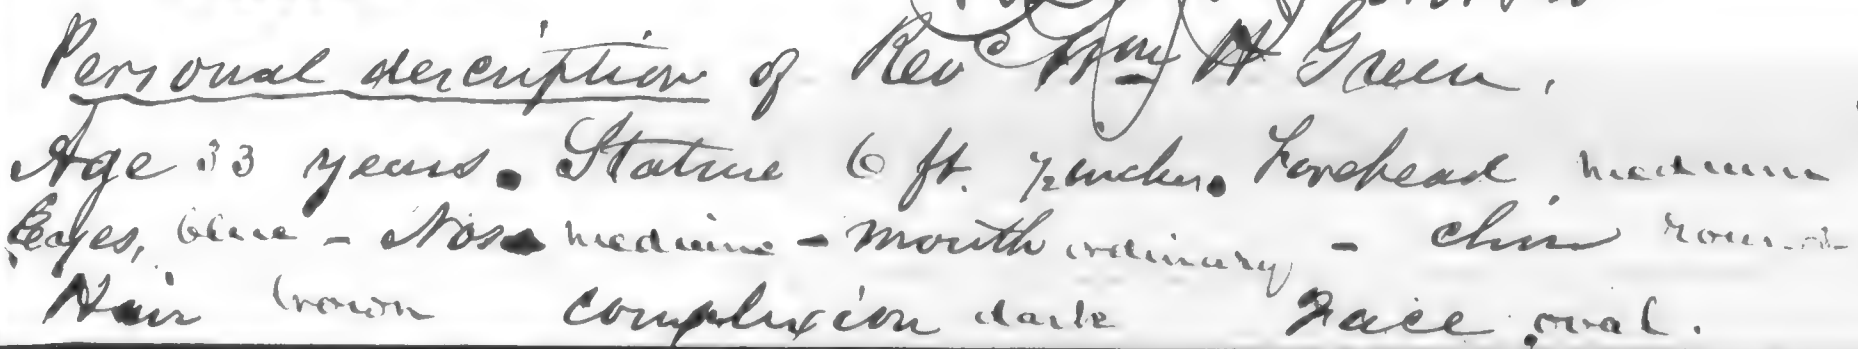 Personal description of Rev Wm H Green.
Age 33 years. Stature 6 ft. ½ inches. Forehead medium
Eyes, blue - Nose medium - mouth ordinary - chin round
Hair brown complexion dark Face oval.